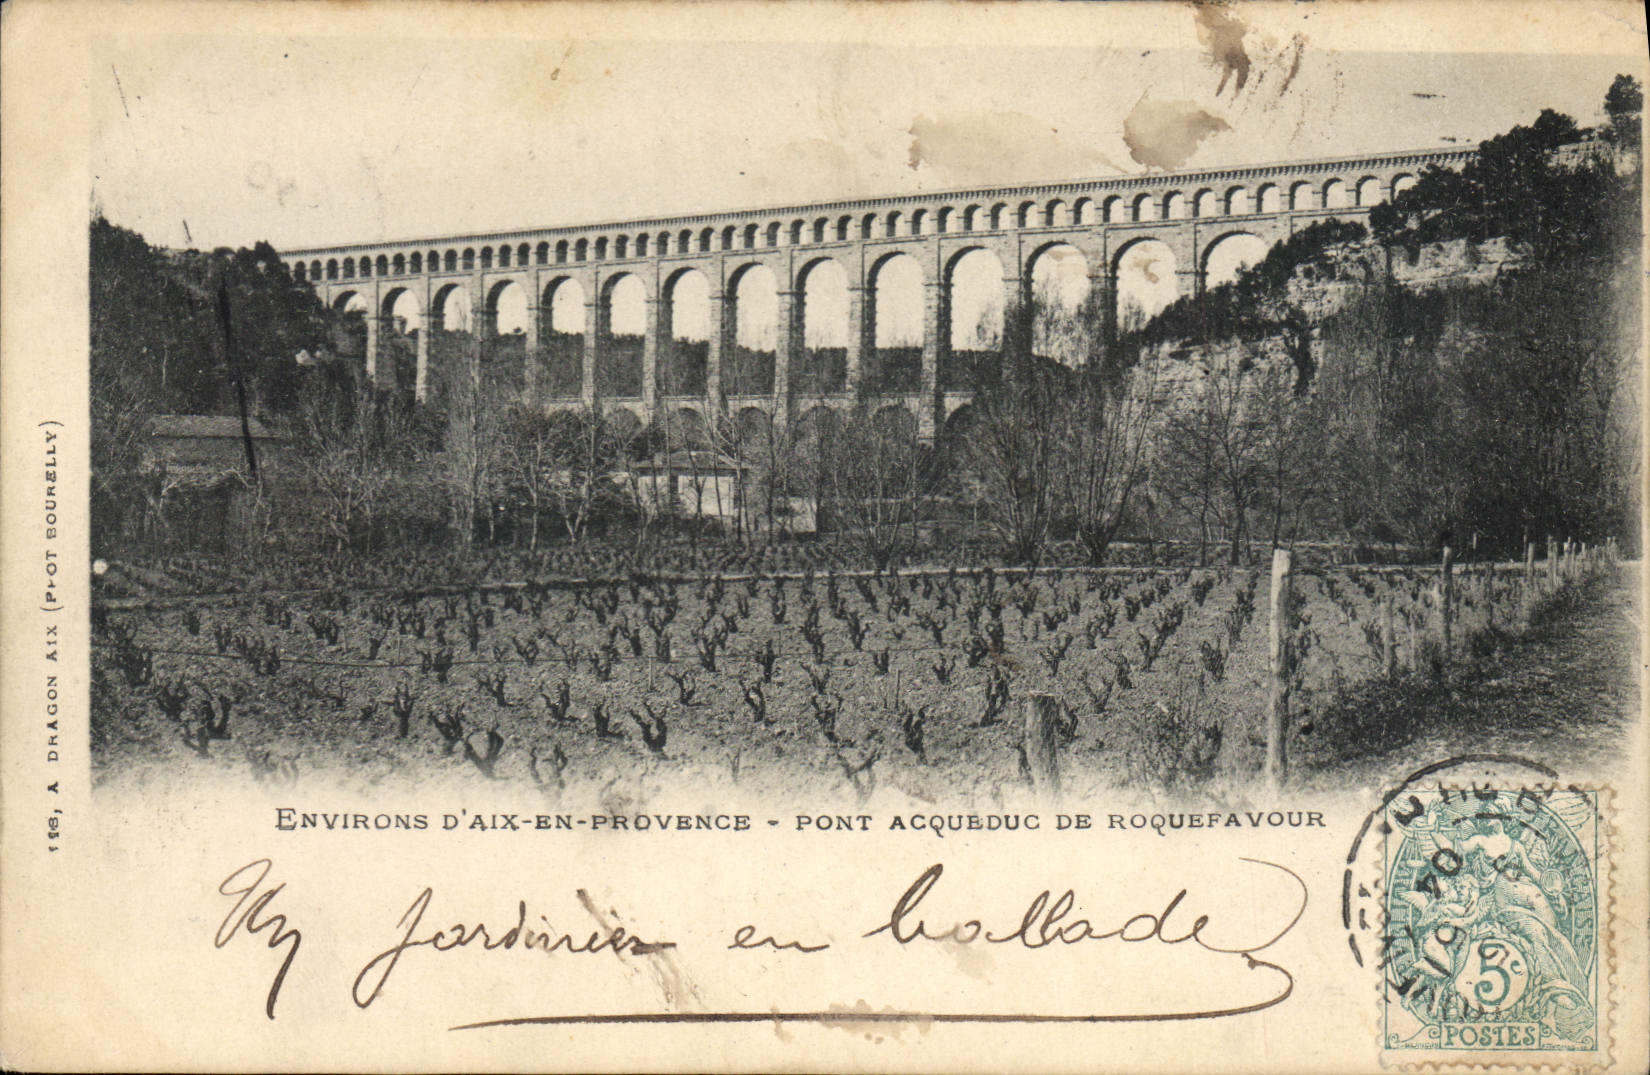 118, A DRAGON AIX (PHOT BOURELLY)
ENVIRONS D'AIX-EN-PROVENCE - PONT ACQUEDUC DE ROQUEFAVOUR
Un jardinier en ballade
04
5c
POSTES